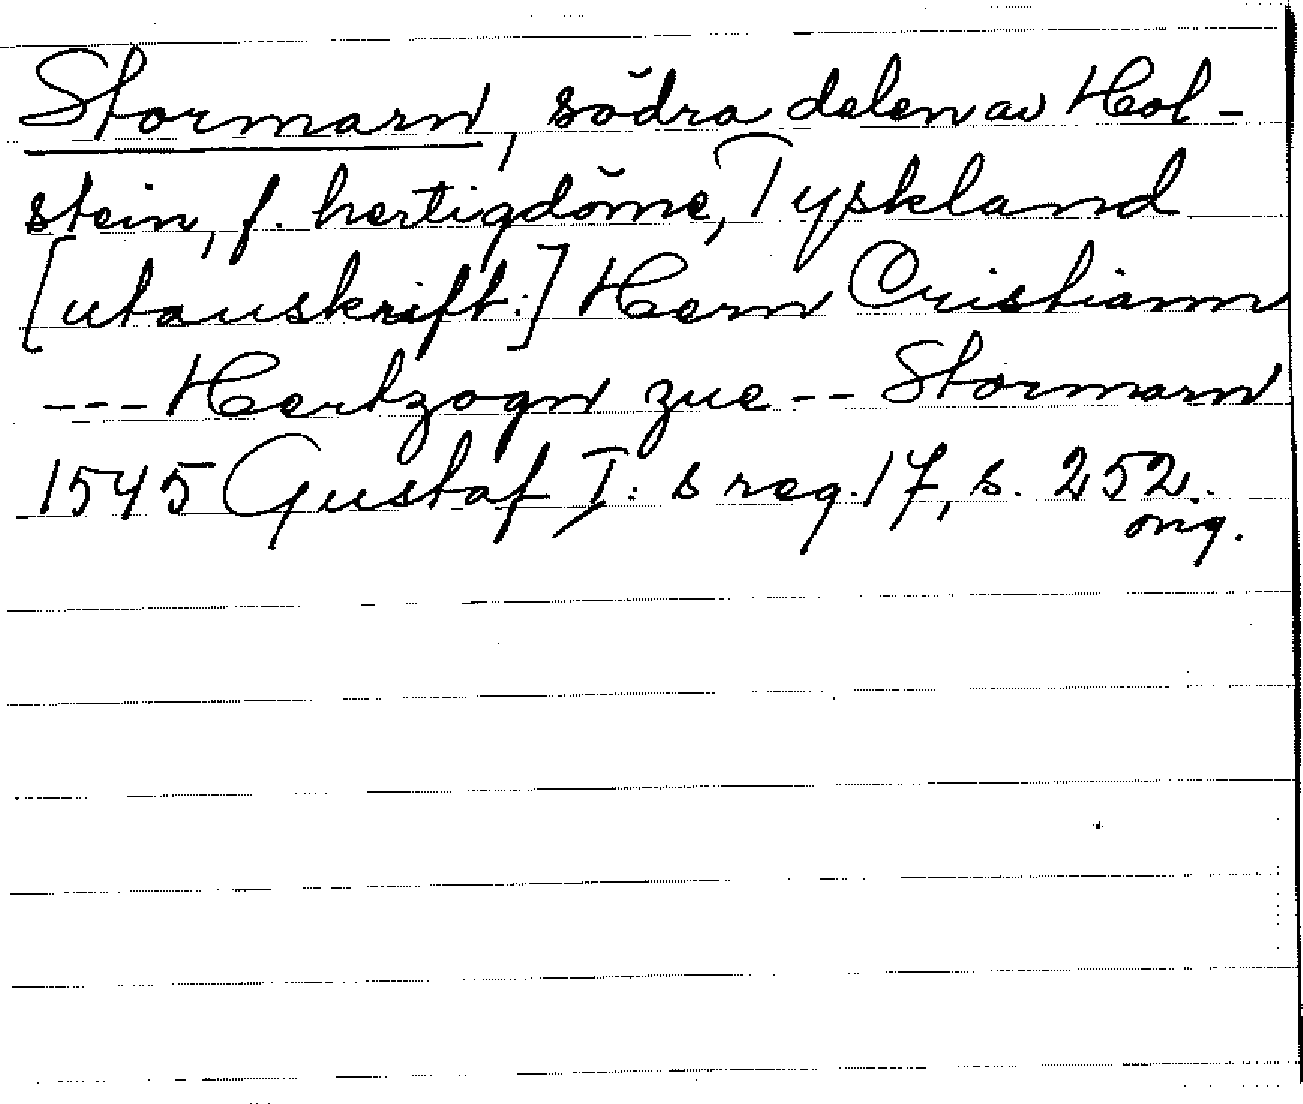 Stormarn, södra delen av Hol-
stein, f. hertigdöme, Tyskland
[utanskrift:] Hern Cristiann
--- Hertzogn zue -- Stormarn
1545 Gustaf I: s reg. 17, s. 252.
orig.